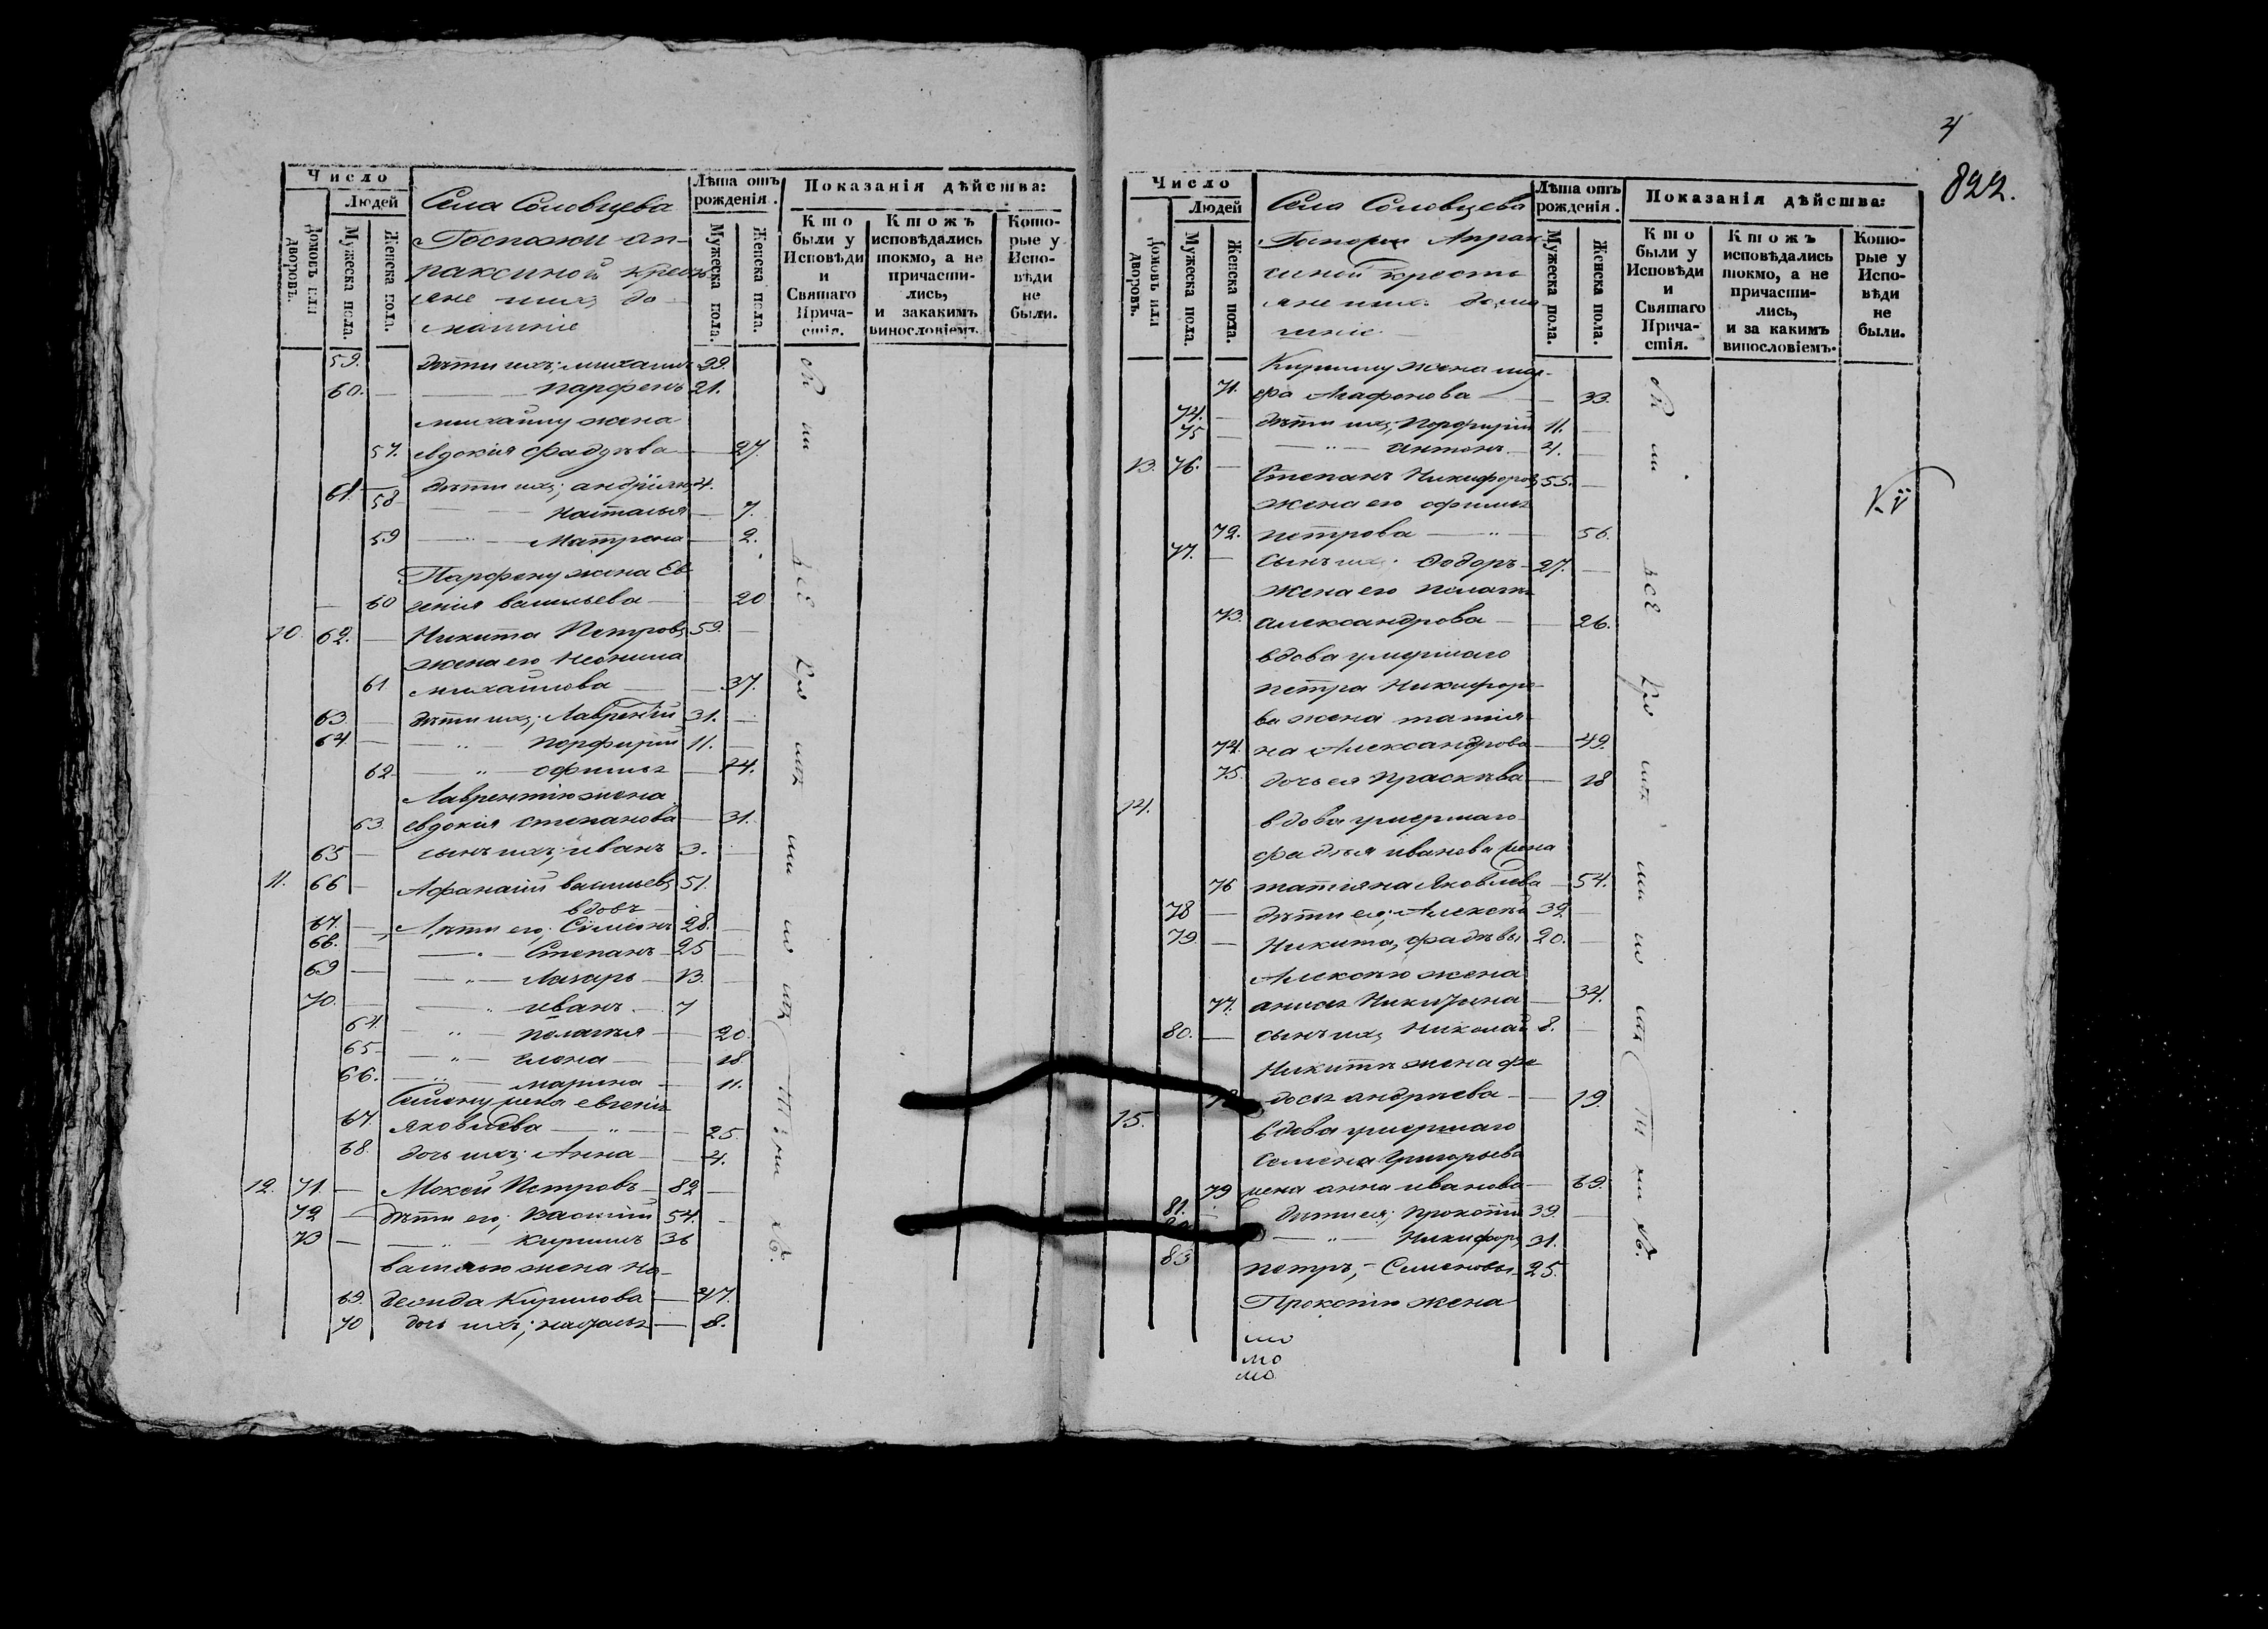 Число
Людей
Домовъ или дворовъ.
Мужеска пола.
Женска пола.
Села Соловцева
Госпожи Ап-
раксиной кресть
яне ихъ до
машніе
Лѣта отъ рожденія.
Мужеска пола.
Женска пола.
Показанія дѣйства:
Кто были у Исповѣди и Святаго Прича-стія.
Ктожъ исповѣдались токмо, а не причасти-лись, и закакимъ винословіемъ.
Кото-рые у Испо-вѣди не были.
59. дѣти ихъ; михаилъ 29.
60. — парфенъ 21.
михаилу жена
57. евдокия фаддѣева — 27.
61. дѣти ихъ; андріянъ 4.
58 — наталья — 7.
59 — матрена — 2.
Парфену жена Ев
60 генія васильева — 20
10. 62. — Никита Петровъ 59. —
жена его неонила
61 михайлова — 37.
63. — дѣти ихъ; Лаврентій 31. —
64. — порфирій 11. —
62. — офимья — 14.
Лаврентію жена
63. евдокія степанова — 31.
65 — сынъ ихъ; иванъ 3. —
11. 66 — Афанасій васильевъ 51.
вдовъ
67. — Дѣти его; Симеонъ 28. —
68. — Степанъ 25 —
69 — Лазарь 13. —
70. — иванъ 7
64. — пелагея — 20
65 — елена — 18.
66. — марина — 11.
Семену жена евгенія
67. яковлева — 25.
68. дочь ихъ; Анна — 4.
12. 71. — Мокей Петровъ 82 —
72 — дѣти его; Василій 54. —
73 — кирилъ 36
василью жена на-
69. деонда Кирилова — 47.
70 дочь ихъ; наталья — 8.
4
822.
Число
Людей
Домовъ или дворовъ.
Мужеска пола.
Женска пола.
Села Соловцева
Госпожи Апрак
синой кресть
яне ихъ дома
шніе
Лѣта отъ рожденія.
Мужеска пола.
Женска пола.
Показанія дѣйства:
Кто были у Исповѣди и Святаго Прича-стія.
Ктожъ исповѣдались токмо, а не причасти-лись, и за какимъ винословіемъ.
Кото-рые у Испо-вѣди не были.
Кирилу жена мар-
71. фа Агафонова — 33.
74. — дѣти ихъ; Порфирій 11. —
75 — антонъ 4. —
13. 76. — Степанъ Никифоровъ 55. —
жена его офимья
72. петрова — 56.
77. — сынъ ихъ Ѳедоръ 27. —
жена его пелагея
73. александрова — 26.
вдова умершаго
петра Никифоро-
ва жена татья-
74. на Александрова — 49.
75. дочь ея Прасковья — 18
14. вдова умершаго
фадѣя иванова жена
76 татіяна Яковлева — 54.
78 — дѣти ея; Алексѣй 39. —
79. — Никита, фадѣевы 20. —
Алексѣю жена
77. анисья Никитина — 34.
80. — сынъ ихъ Николай 8. —
Никитѣ жена фе
досья андреева — 19.
15. вдова умершаго
Семена Григорьева
79 жена анна иванова — 69.
81. дѣти ея; Прокопій 39. —
— Никифоръ 31.
83 петръ, Семеновы 25.
Прокопію жена